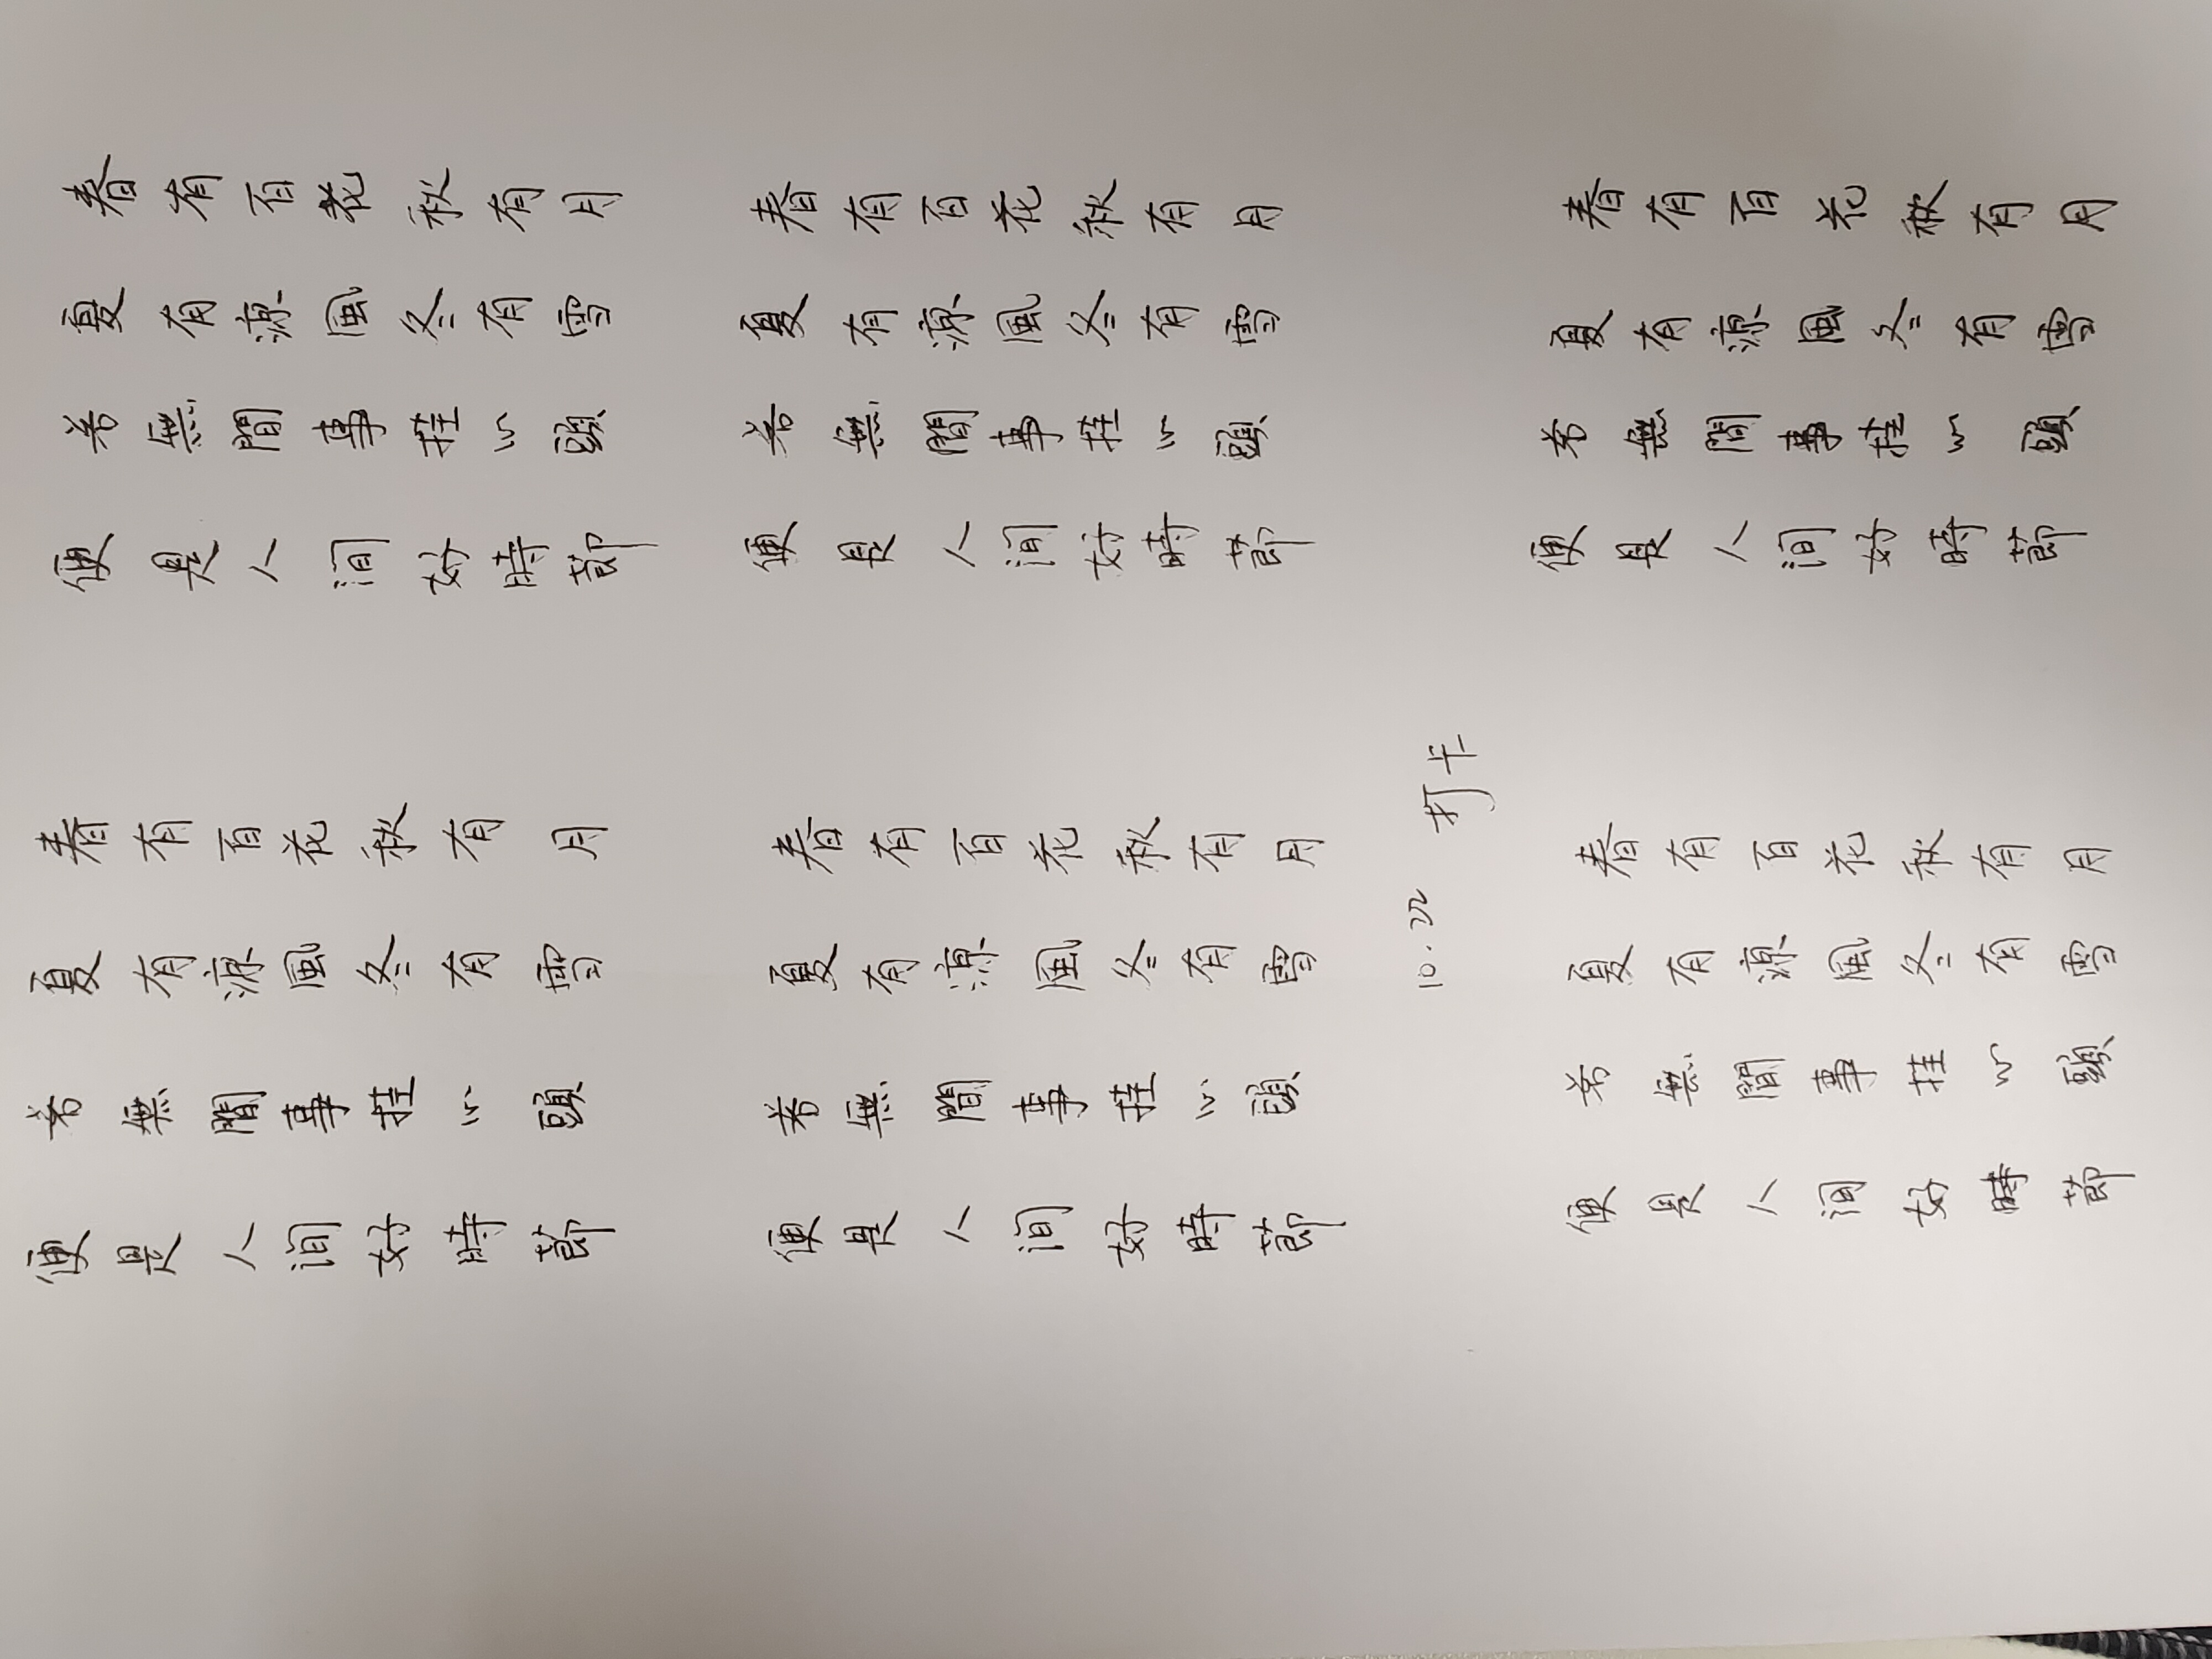 春有百花秋有月
夏有涼風冬有雪
若無閒事挂心頭
便是人间好時節
春有百花秋有月
夏有涼風冬有雪
若無閒事挂心頭
便是人间好時節
春有百花秋有月
夏有涼風冬有雪
若無閒事挂心頭
便是人间好時節
春有百花秋有月
夏有涼風冬有雪
若無閒事挂心頭
便是人间好時節
10.22 打卡
春有百花秋有月
夏有涼風冬有雪
若無閒事挂心頭
便是人间好時節
春有百花秋有月
夏有涼風冬有雪
若無閒事挂心頭
便是人间好時節